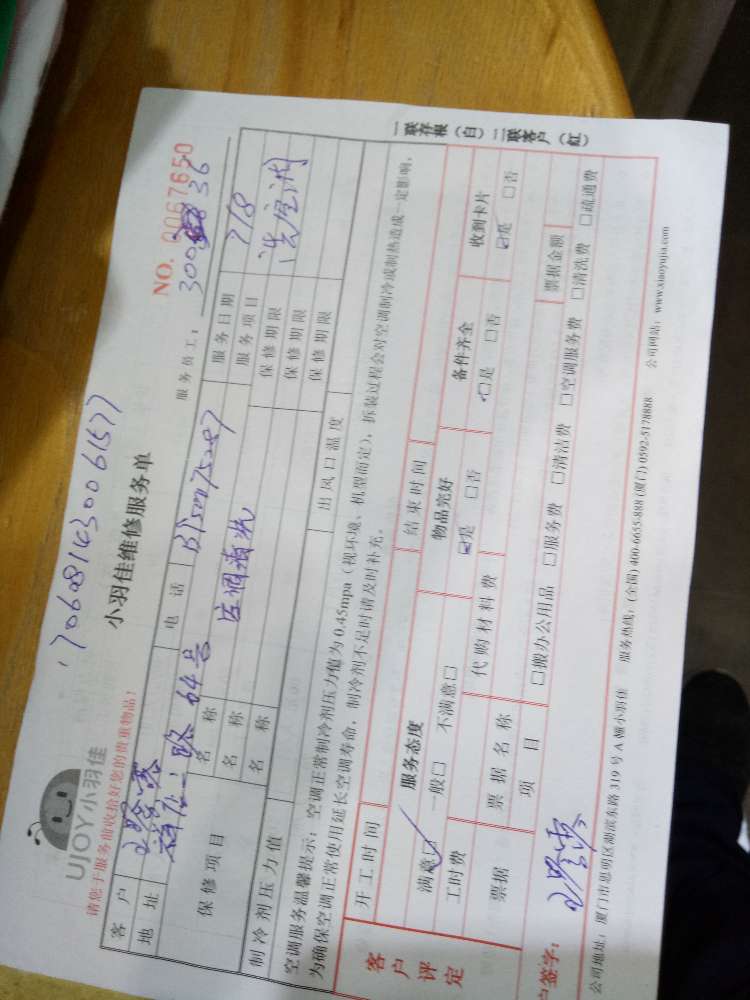 1706081430061577
UJOY小羽佳
小羽佳维修服务单
NO. 0067650
请您于服务前收拾好您的贵重物品!
服务员工:
36
客 户
电 话
服务日期 7/8
地 址
二路 64号
服务项目 洗空调
保修项目
名 称
空调清洗
保修期限
名 称
保修期限
名 称
保修期限
制冷剂压力值
出风口温度
空调服务温馨提示:空调正常制冷剂压力值为0.45mpa(视环境、机型而定),拆装过程会对空调制冷或制热造成一定影响,
为确保空调正常使用延长空调寿命,制冷剂不足时请及时补充。
一联存根(白) 二联客户(红)
客户评定
开工时间
结束时间
服务态度
物品完好
备件齐全
收到卡片
满意☑ 一般□ 不满意□
☑是 □否
☑是 □否
☑是 □否
工时费
代购材料费
票据
票据名称
票据金额
项 目
□搬办公用品 □服务费 □清洁费 □空调服务费 □清洗费 □疏通费
户签字:
公司地址:厦门市思明区湖滨东路319号A幢小羽佳 服务热线:(全国) 400-6655-888 (厦门) 0592-5178888 公司网站:www.xiaoyujia.com